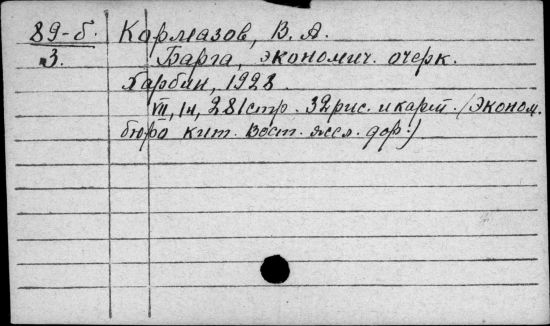 89-б. Кормазов, В. А.
3. Барга, экономич. очерк.
Харбин, 1928
VII, 14, 281 стр. 32 рис. и карт. (Эконом.
бюро Кит. Вост. жел. дор.)